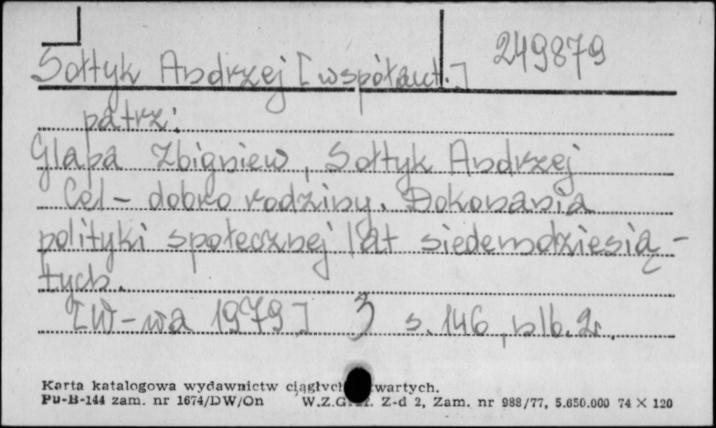 249879
Sołtyk Andrzej [współaut.]
patrz:
Glapa Zbigniew, Sołtyk Andrzej
Cel - dobro rodziny. Dokonania
polityki społecznej lat siedemdziesią-
tych.
[W-wa 1979] s. 146, nlb. 2.
Karta katalogowa wydawnictw ciągłych wartych.
Pu-B-144 zam. nr 1674/DW/On W.Z.G. Z-d 2, Zam. nr 988/77, 5.650.000 74 × 120